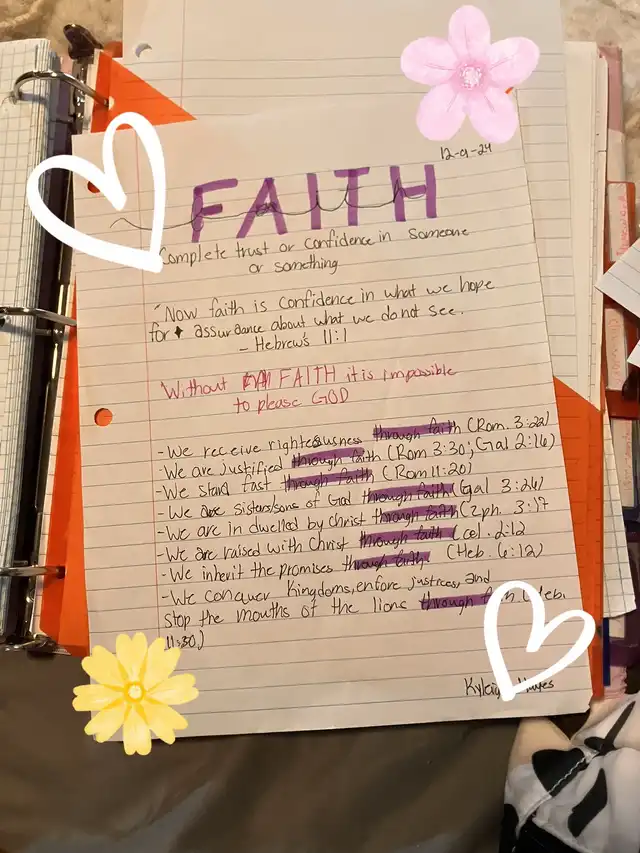 12-9-24
FAITH
Complete trust or confidence in someone
or something
"Now faith is confidence in what we hope
for + assurdance about what we do not see.
- Hebrew's 11:1
Without FAITH it is impossible
to please GOD
-We receive righteousness through faith (Rom. 3:22)
-We are justified through faith (Rom 3:30; Gal 2:16)
-We stand fast through faith (Rom 11:20)
-We are sisters/sons of God through faith (Gal 3:26)
-We are in dwelled by christ through faith (Eph. 3:17
-We are raised with Christ through faith (col. 2:12
-We inherit the promises through faith. (Heb. 6:12)
-We conquer Kingdoms, enfore justices, and
stop the mouths of the lions through (Heb.
11:30)